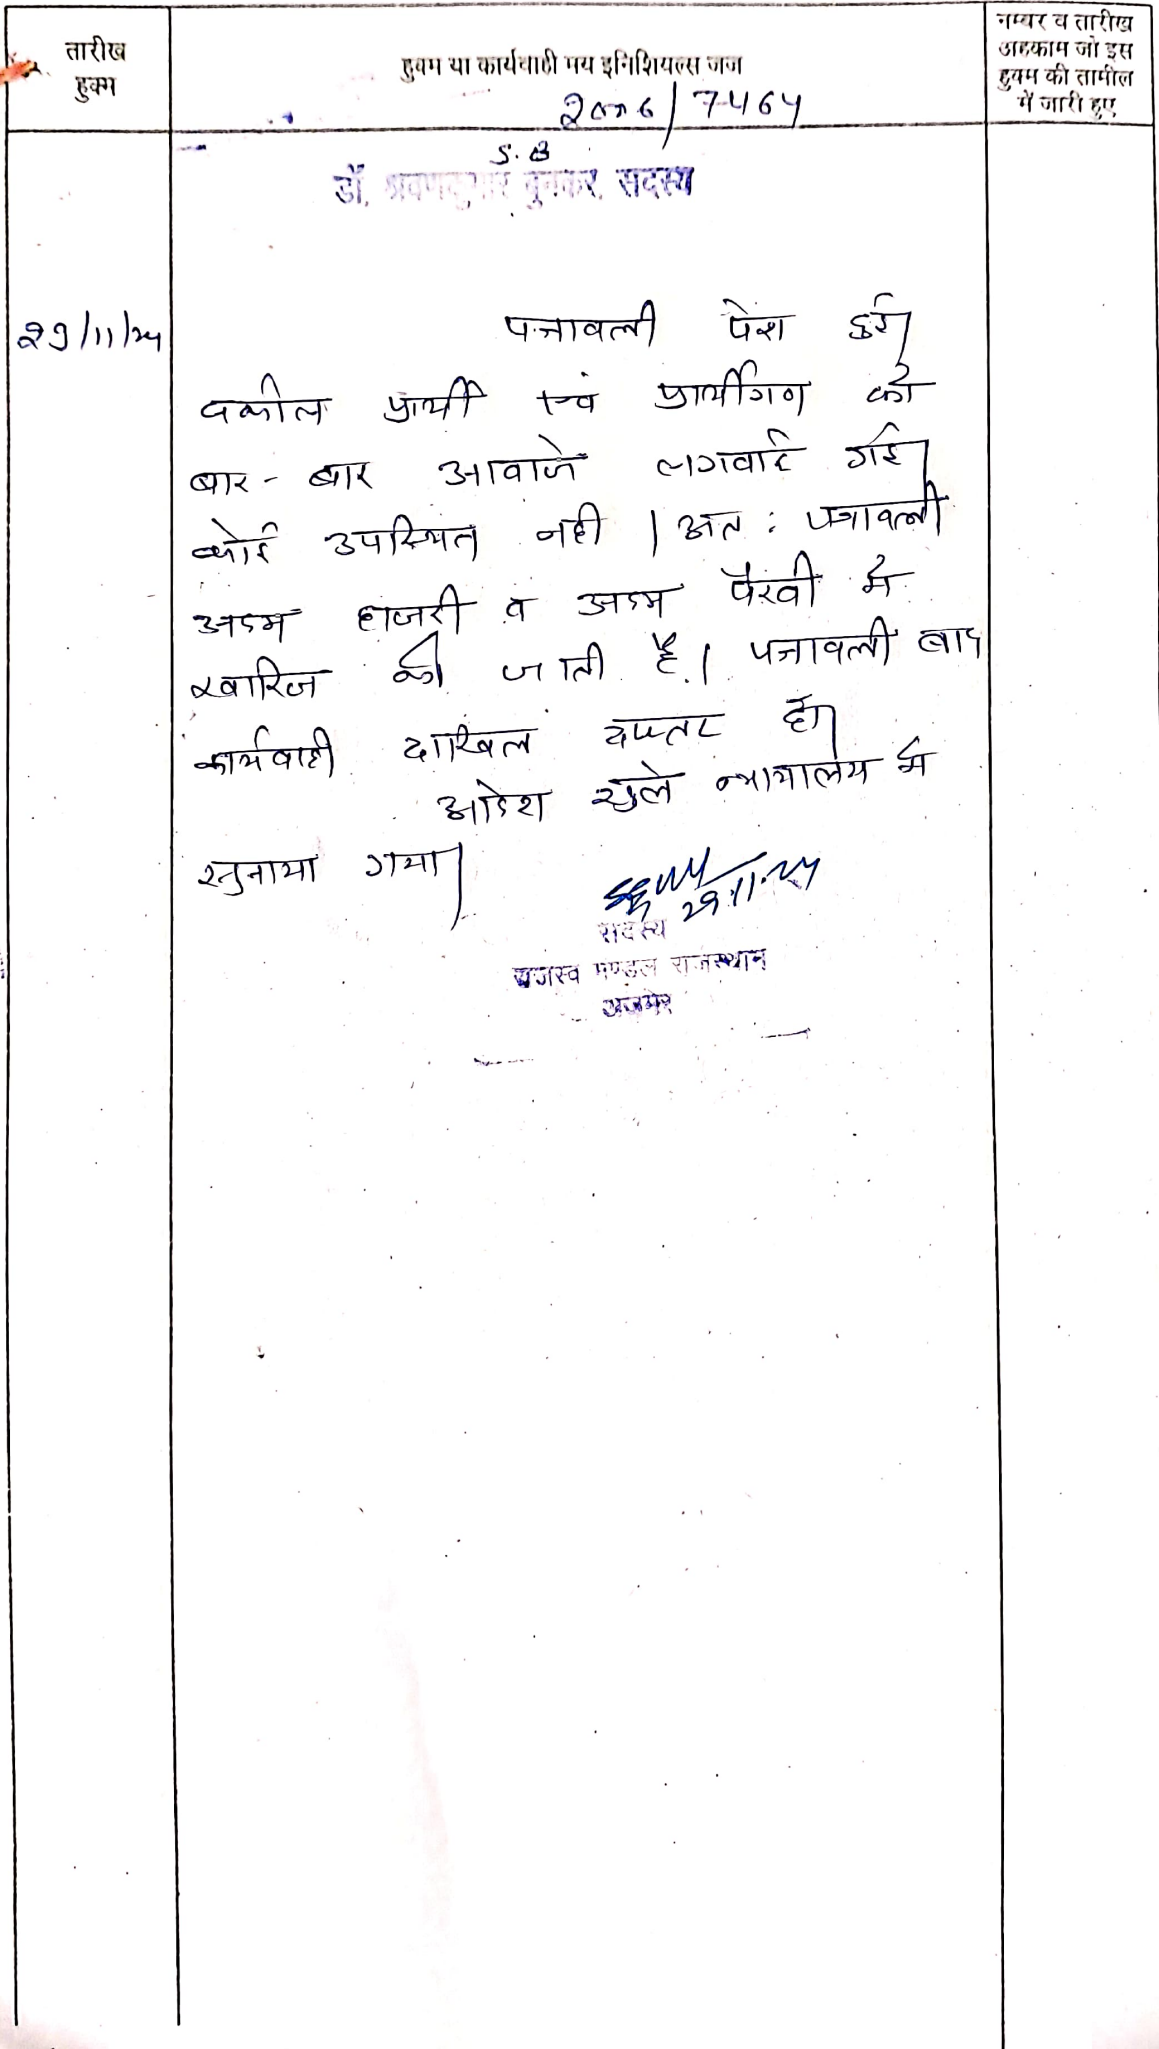 तारीख
हुक्म
हुक्म या कार्यवाही मय इनिशियल्स जज
नम्बर व तारीख
अहकाम जो इस
हुक्म की तामील
में जारी हुए
2006/7464
S.B
डॉ. श्रवणकुमार बुनकर, सदस्य
29/11/24
पत्रावली पेश हुई।
वकील प्रार्थी एवं प्रार्थीगण को
बार-बार आवाजे लगवाई गई।
कोई उपस्थित नही। अत: पत्रावली
अदम हाजरी व अदम पैरवी में
खारिज की जाती है। पत्रावली बाद
कार्यवाही दाखिल दफ्तर हो।
आदेश खुले न्यायालय में
सुनाया गया।
29.11.24
सदस्य
राजस्व मण्डल राजस्थान
अजमेर